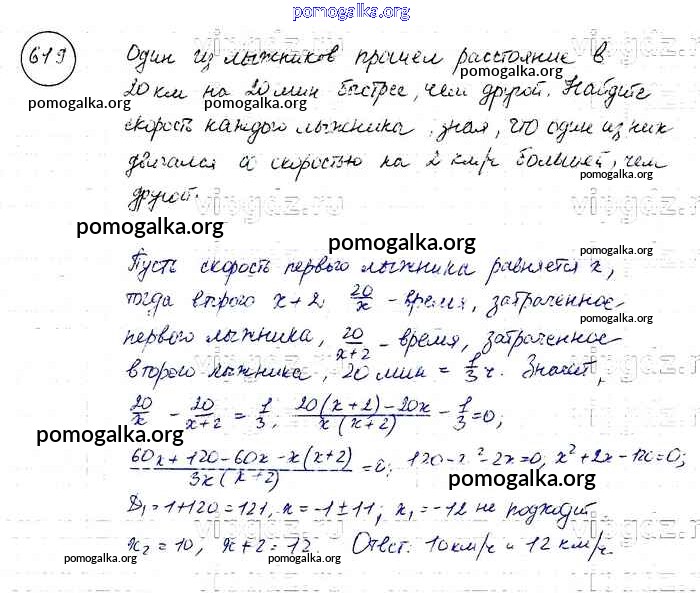 pomogalka.org
619 Один из лыжников прошел расстояние в
20 км на 20 мин быстрее, чем другой. Найдите
скорость каждого лыжника, зная, что один из них
двигался со скоростью на 2 км/ч большей, чем
другой.
Пусть скорость первого лыжника равняется x,
тогда второго x+2, 20/x - время, затраченное
первого лыжника, 20/(x+2) - время, затраченное
второго лыжника, 20 мин = 1/3 ч. Значит,
20/x - 20/(x+2) = 1/3; (20(x+2)-20x)/(x(x+2)) - 1/3 = 0;
(60x+120-60x-x(x+2))/(3x(x+2)) = 0; 120-x²-2x=0; x²+2x-120=0;
D₁=1+120=121, x=-1±11; x₁=-12 не подходит.
x₂=10, x+2=12. Ответ: 10 км/ч и 12 км/ч.
pomogalka.org
pomogalka.org
pomogalka.org
pomogalka.org
pomogalka.org
pomogalka.org
pomogalka.org
pomogalka.org
pomogalka.org
pomogalka.org
pomogalka.org
pomogalka.org
pomogalka.org